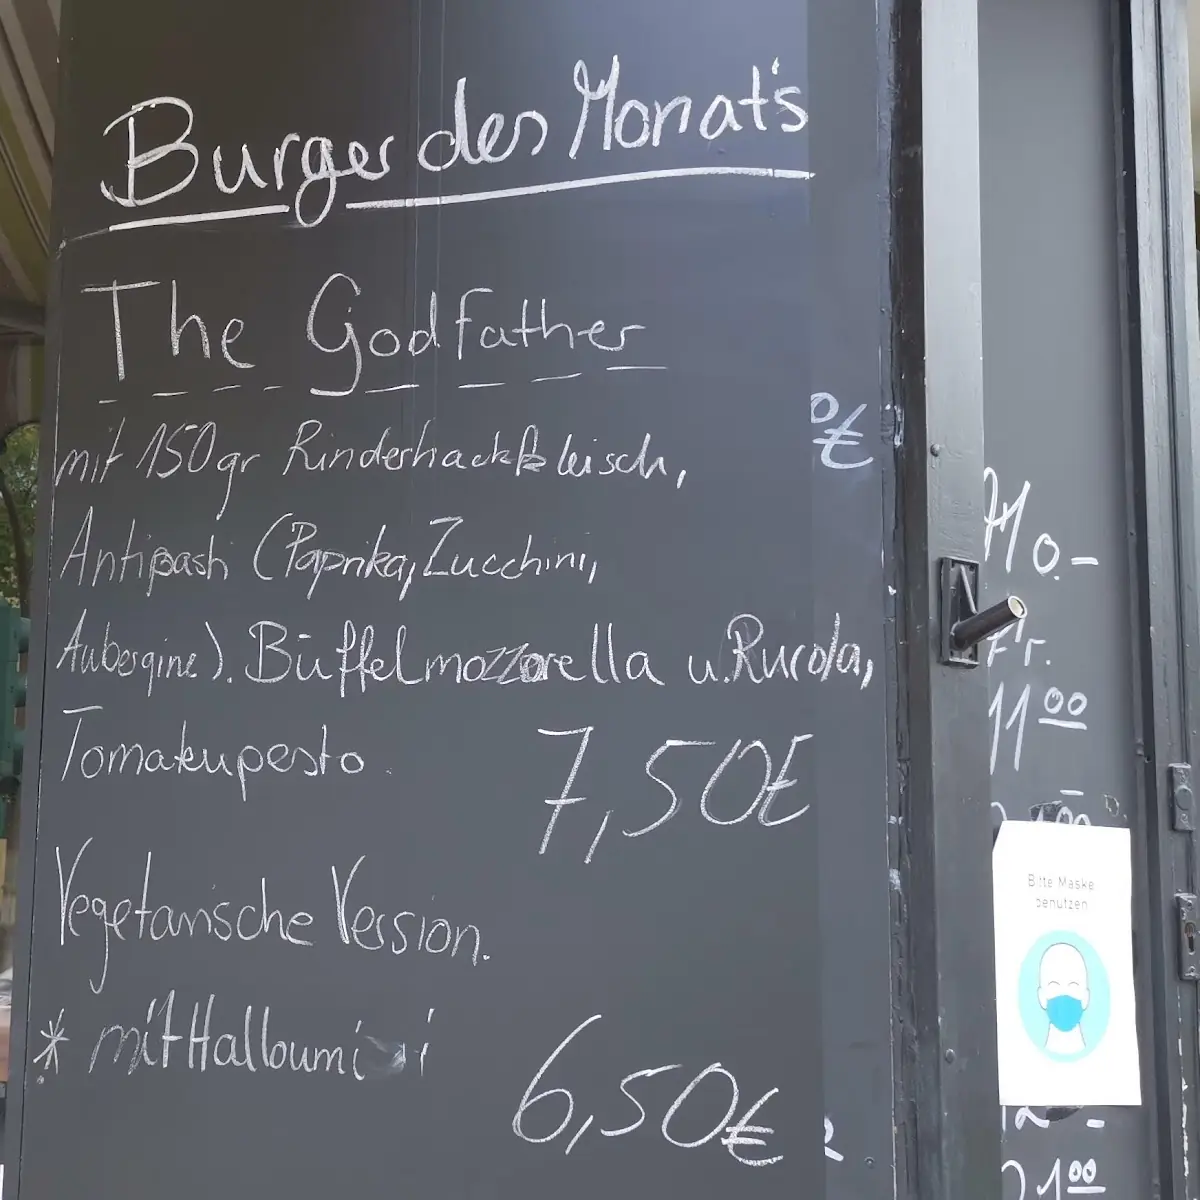 Burger des Monat's
The Godfather
mit 150gr Rinderhackfleisch,
Antipasti (Paprika, Zucchini,
Aubergine). Büffelmozzorella u. Rucola,
Tomatenpesto
7,50€
Vegetarische Version.
* mit Halloumi
6,50€
€
Mo.-
Fr.
11 00
Bitte Maske
benutzen
21 00